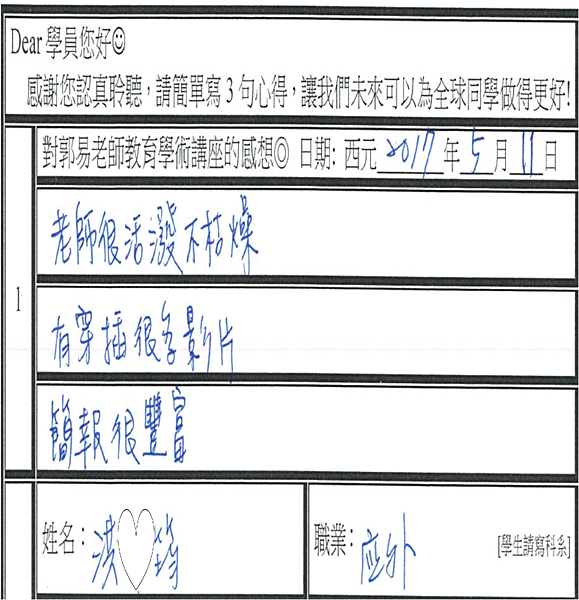 Dear 學員您好☺
感謝您認真聆聽，請簡單寫 3 句心得，讓我們未來可以為全球同學做得更好!
對郭易老師教育學術講座的感想◎ 日期: 西元 2017 年 5 月 11 日
1
老師很活潑不枯燥
有穿插很多影片
簡報很豐富
姓名： 洪♡筠
職業： 應外 [學生請寫科系]